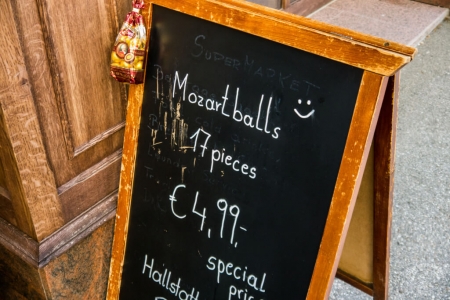 SUPERMARKET
Mozartballs
17 pieces
€ 4,99,-
special
Hallstatt